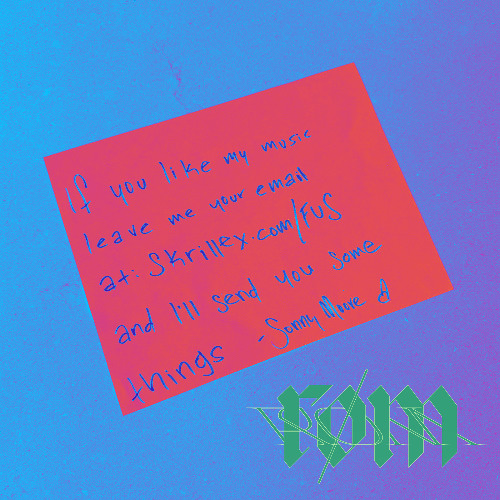 If you like my music
leave me your email
at: Skrillex.com/FUS
and I'll send you some
things - Sonny Moore
rom